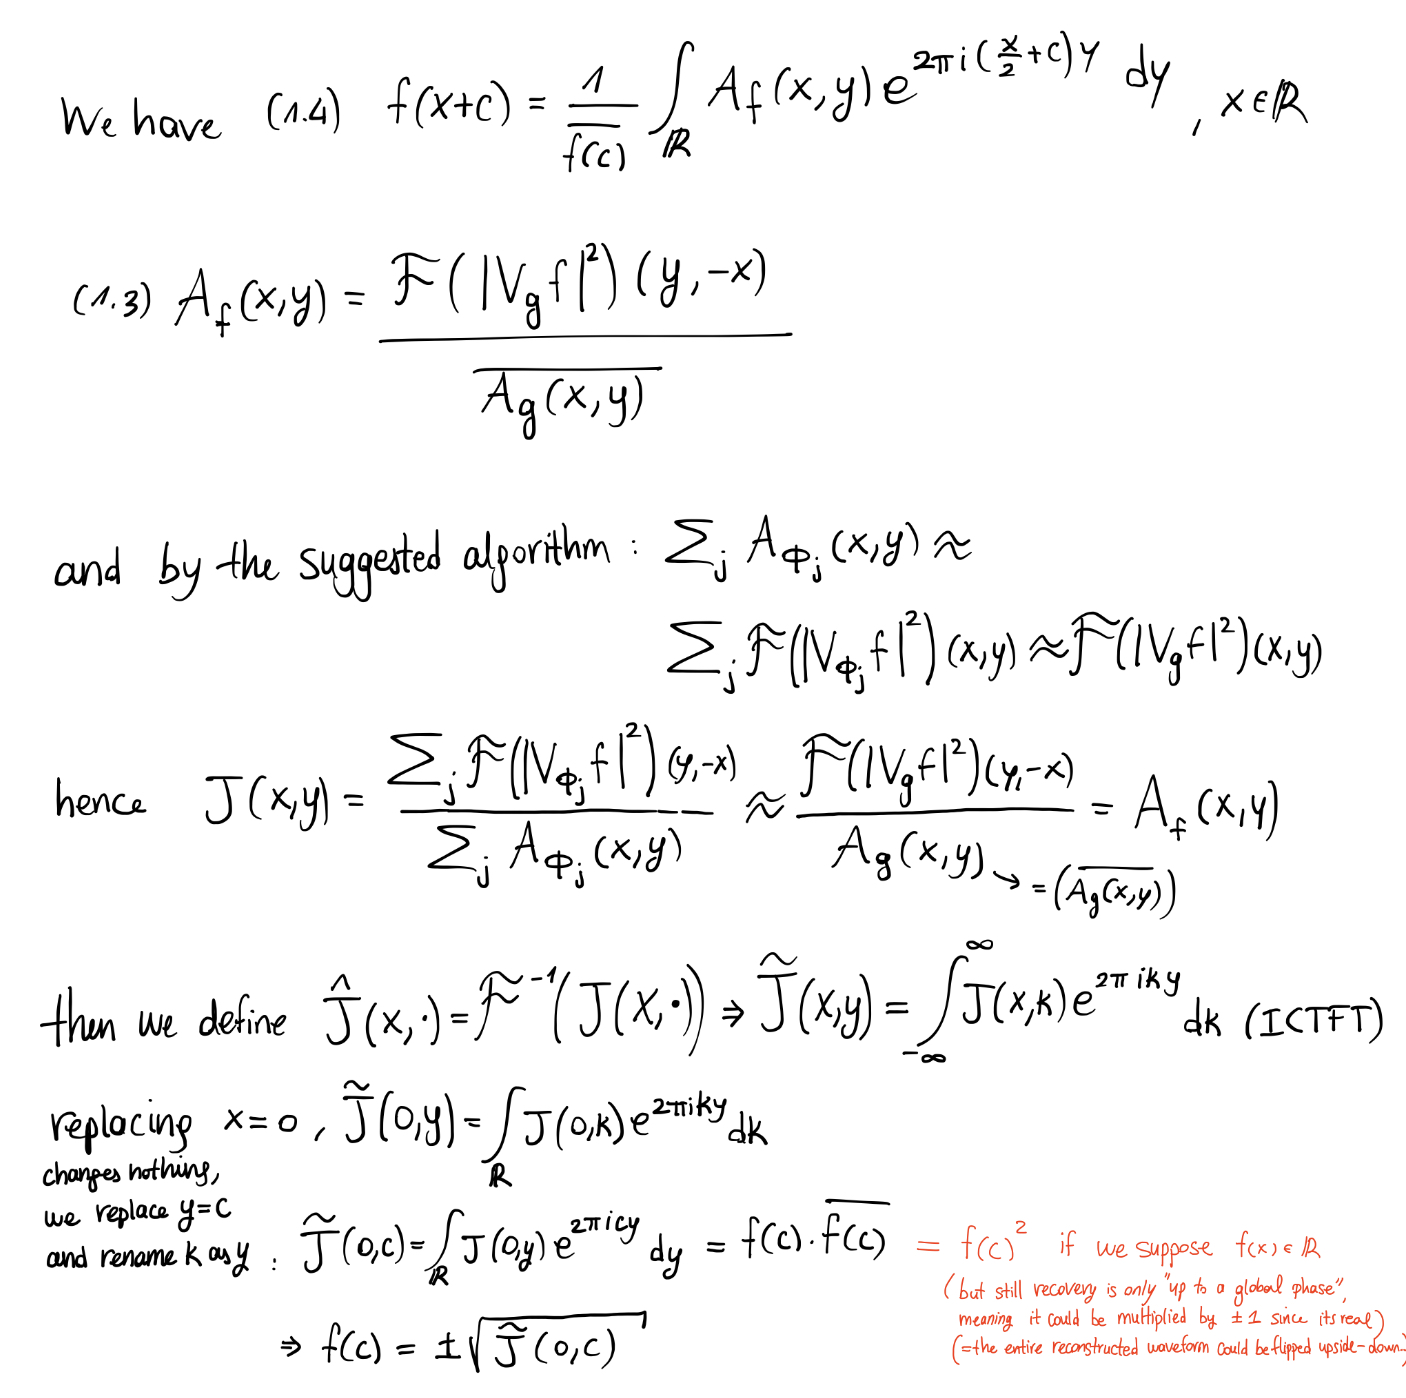 We have (1.4) f(x+c) = 1/\overline{f(c)} ∫_ℝ A_f(x,y) e^{2πi(x/2+c)y} dy , x∈ℝ
(1.3) A_f(x,y) = ℱ(|V_g f|²)(y,-x) / \overline{A_g(x,y)}
and by the suggested algorithm : Σ_j A_{Φ_j}(x,y) ≈
Σ_j ℱ(|V_{Φ_j} f|²)(x,y) ≈ ℱ(|V_g f|²)(x,y)
hence J(x,y) = Σ_j ℱ(|V_{Φ_j} f|²)(y,-x) / Σ_j A_{Φ_j}(x,y) ≈ ℱ(|V_g f|²)(y,-x) / A_g(x,y) = A_f(x,y)
↪ = (\overline{A_g(x,y)})
then we define Ĵ(x,·) = ℱ^{-1}(J(x,·)) ⇒ J̃(x,y) = ∫_{-∞}^{∞} J(x,k) e^{2πiky} dk (ICTFT)
replacing x=0 , J̃(0,y) = ∫_ℝ J(0,k) e^{2πiky} dk
changes nothing,
we replace y=c
and rename k as y : J̃(0,c) = ∫_ℝ J(0,y) e^{2πicy} dy = f(c)·\overline{f(c)} = f(c)² if we suppose f(x)∈ℝ
(but still recovery is only "up to a global phase",
meaning it could be multiplied by ±1 since its real)
(=the entire reconstructed waveform could be flipped upside-down..
⇒ f(c) = ±√(J̃(0,c))